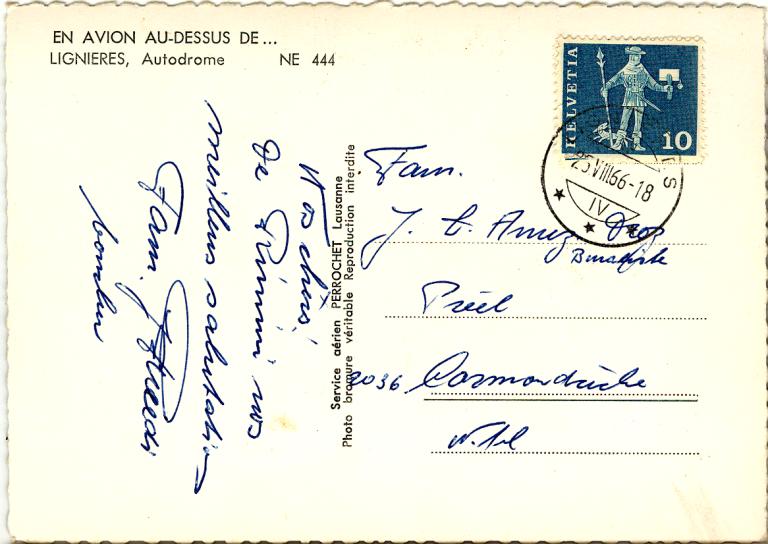 EN AVION AU-DESSUS DE...
LIGNIERES, Autodrome NE 444
HELVETIA
10
25.VIII.66-18
IV
Vos chers,
de Rimini nos
meilleurs salutation
Fam.
Service aérien PERROCHET Lausanne
Photo bromure véritable Reproduction interdite
Fam.
J. C. Amez Droz
Préel
2036 Cormondrèche
N.tel